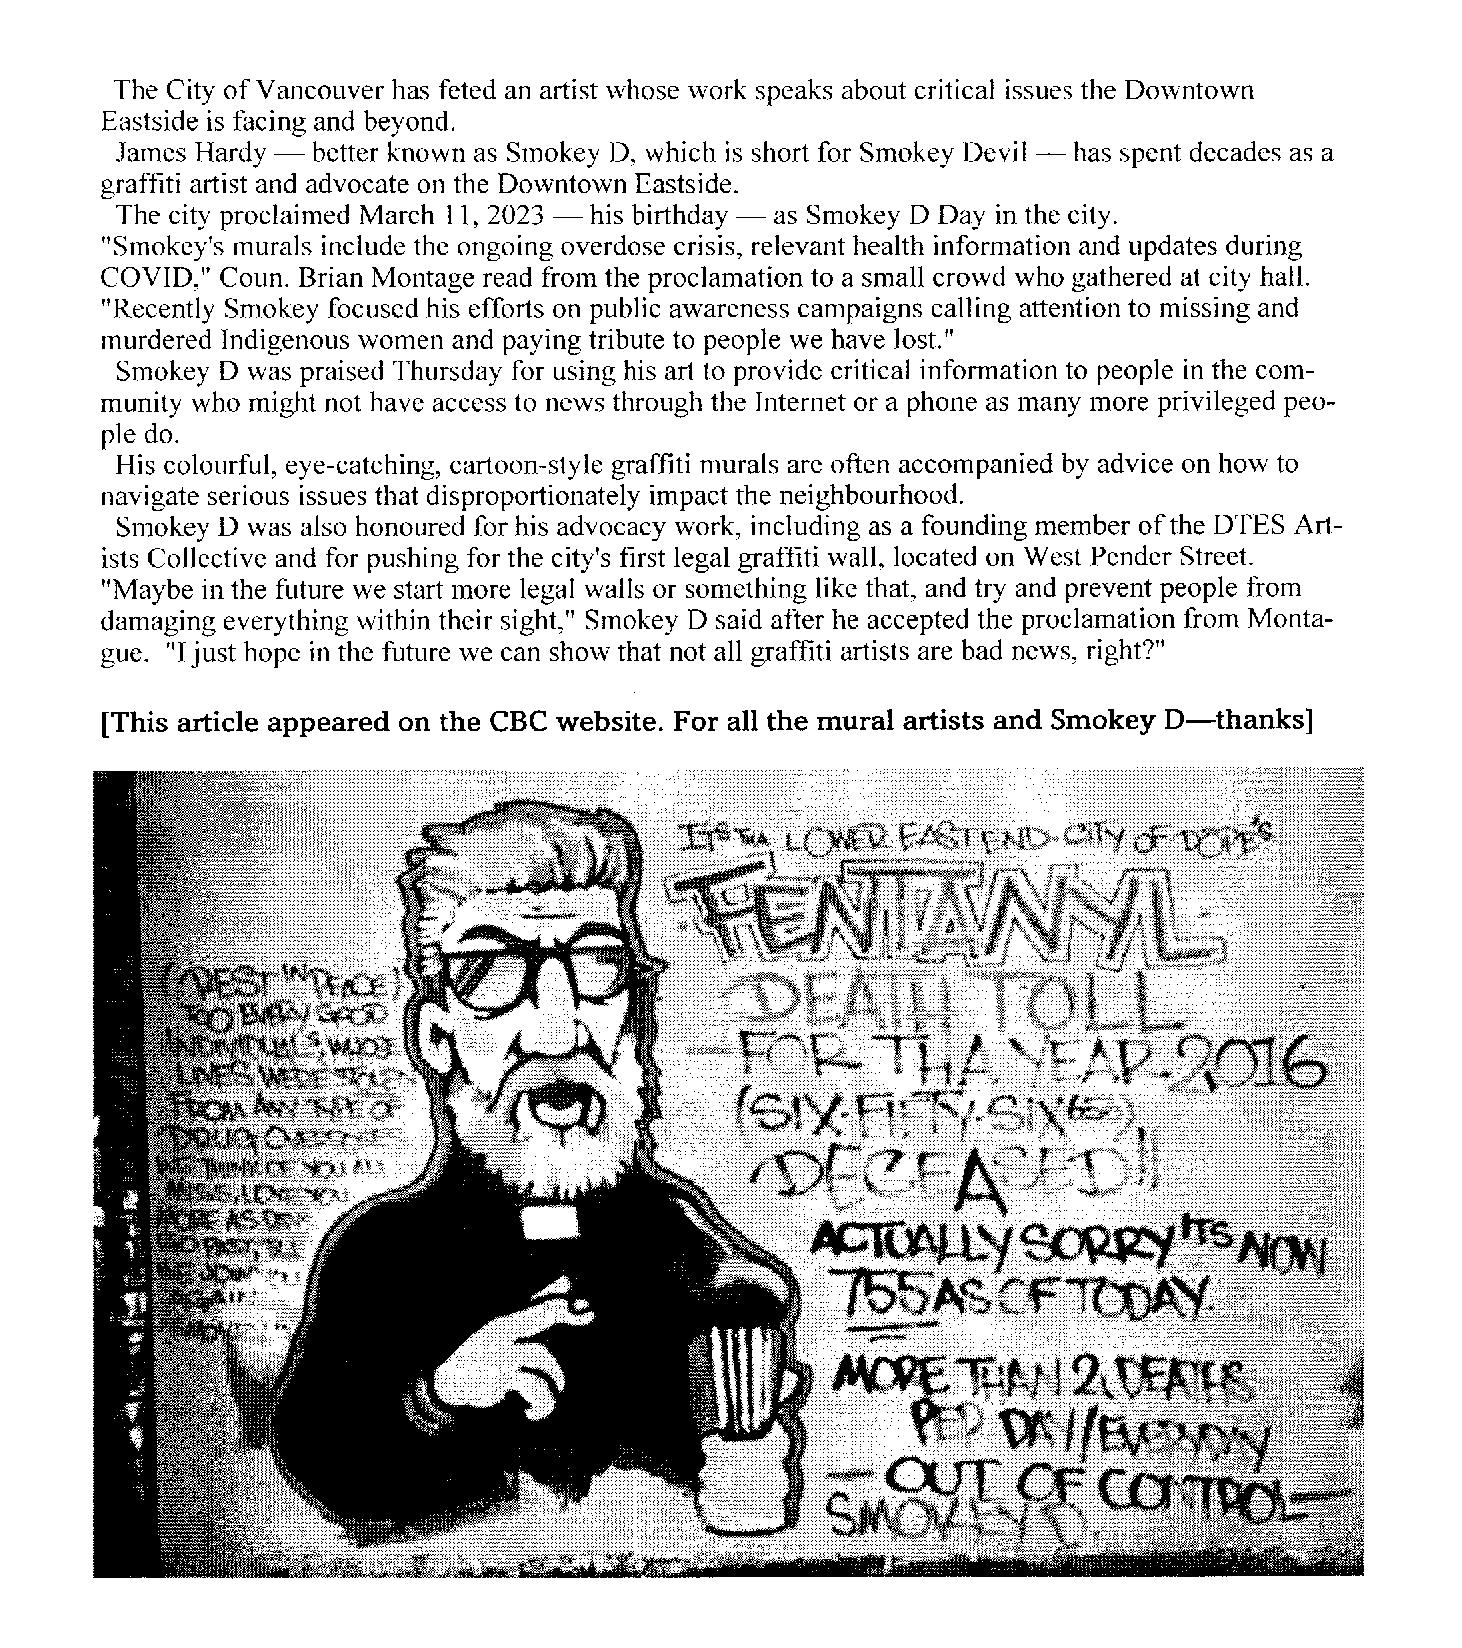 The City of Vancouver has feted an artist whose work speaks about critical issues the Downtown
Eastside is facing and beyond.
James Hardy — better known as Smokey D, which is short for Smokey Devil — has spent decades as a
graffiti artist and advocate on the Downtown Eastside.
The city proclaimed March 11, 2023 — his birthday — as Smokey D Day in the city.
"Smokey's murals include the ongoing overdose crisis, relevant health information and updates during
COVID," Coun. Brian Montage read from the proclamation to a small crowd who gathered at city hall.
"Recently Smokey focused his efforts on public awareness campaigns calling attention to missing and
murdered Indigenous women and paying tribute to people we have lost."
Smokey D was praised Thursday for using his art to provide critical information to people in the com-
munity who might not have access to news through the Internet or a phone as many more privileged peo-
ple do.
His colourful, eye-catching, cartoon-style graffiti murals are often accompanied by advice on how to
navigate serious issues that disproportionately impact the neighbourhood.
Smokey D was also honoured for his advocacy work, including as a founding member of the DTES Art-
ists Collective and for pushing for the city's first legal graffiti wall, located on West Pender Street.
"Maybe in the future we start more legal walls or something like that, and try and prevent people from
damaging everything within their sight," Smokey D said after he accepted the proclamation from Monta-
gue. "I just hope in the future we can show that not all graffiti artists are bad news, right?"
[This article appeared on the CBC website. For all the mural artists and Smokey D—thanks]
(REST IN PEACE)
TO EVERY GOOD
INDIVIDUALS, WHOS
LIVES WERE STOLE
FROM ANY TYPE OF
WE THINK OF YOU ALL
MISS, LOVE YOU
AGAIN
ITS THA LOWER EAST END-CITY OF DOPE'S
FENTANYL
DEATH TOLL
FOR THA YEAR-2016
(SIX-FIFTY-SIX)
DECEASED!!
ACTUALLY SORRY ITS NOW
755 AS OF TODAY.
MORE THAN 2 DEATHS
PER DAY//EVERYDAY
— OUT OF CONTROL —
SMOKEY D